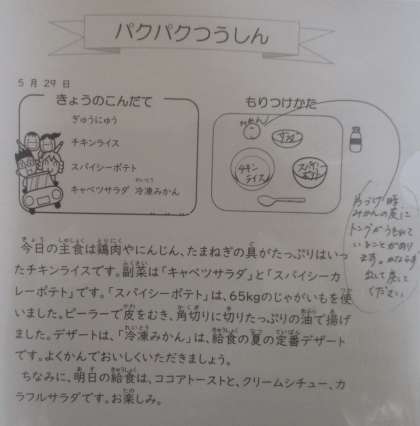 パクパクつうしん
5月29日
きょうのこんだて
ぎゅうにゅう
チキンライス
スパイシーポテト
キャベツサラダ 冷凍みかん
もりつけかた
みかん
サラダ
チキンライス
スパイシーポテト
片づけ時
みかんの皮に
トングがうもれて
いることがあり
ます。
出して戻して
ください
今日の主食は鶏肉やにんじん、たまねぎの具がたっぷりはいっ
たチキンライスです。副菜は「キャベツサラダ」と「スパイシーカ
レーポテト」です。「スパイシーポテト」は、65kgのじゃがいもを使
いました。ピーラーで皮をむき、角切りに切りたっぷりの油で揚げ
ました。デザートは、「冷凍みかん」は、給食の夏の定番デザート
です。よくかんでおいしくいただきましょう。
ちなみに、明日の給食は、ココアトーストと、クリームシチュー、カ
ラフルサラダです。お楽しみ。